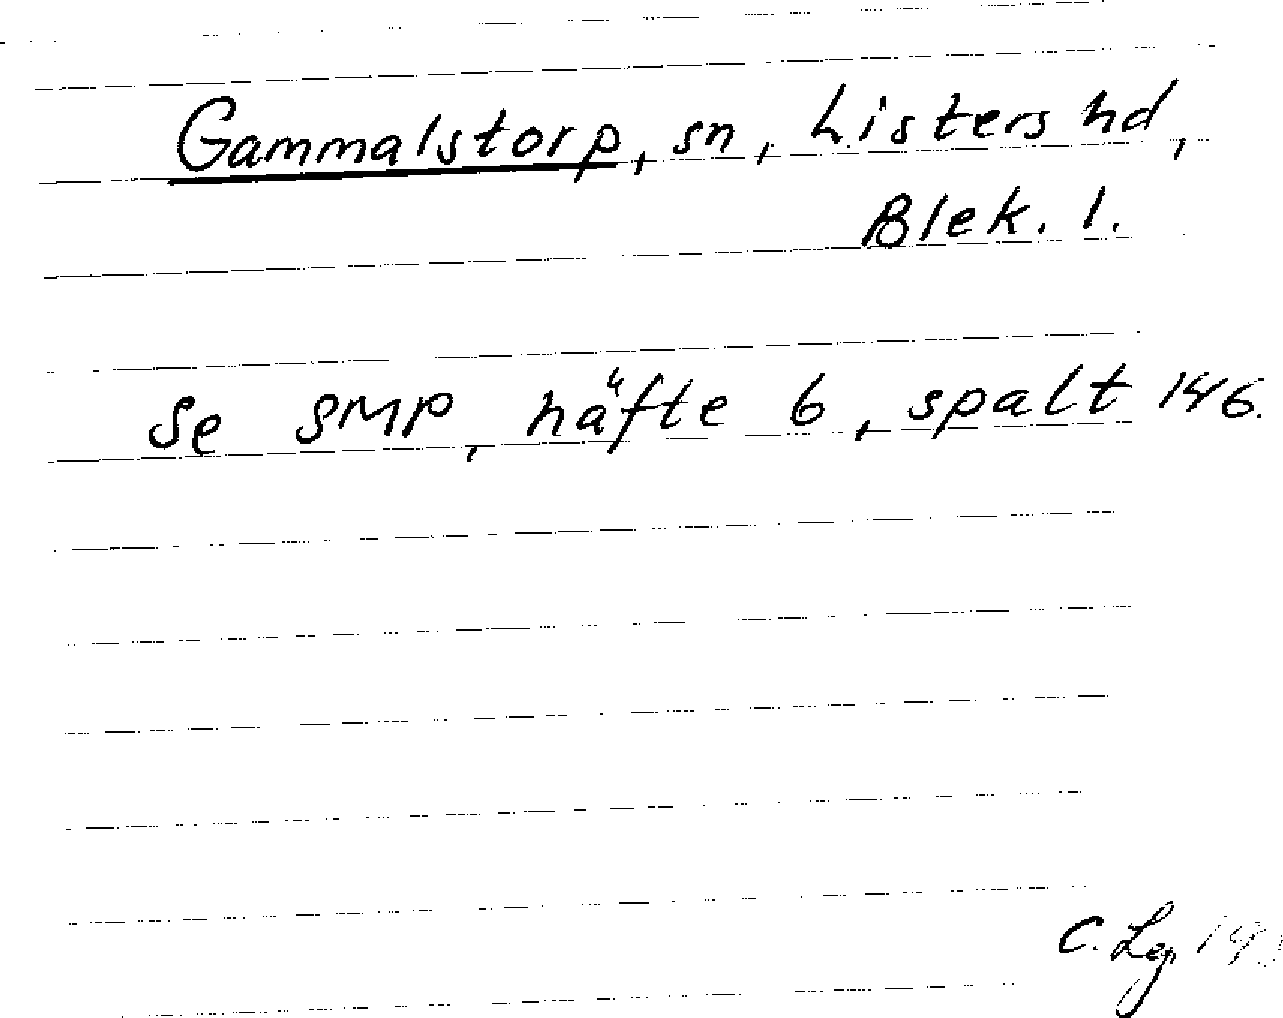 Gammalstorp, sn, Listers hd,
Blek. l.
Se SMP, häfte 6, spalt 146.
C.